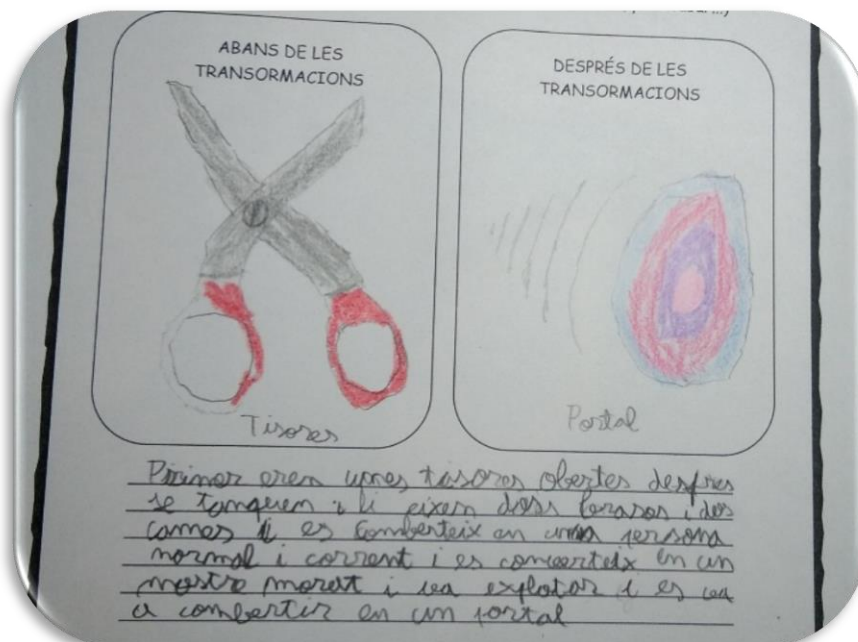 ABANS DE LES
TRANSORMACIONS
Tisores
DESPRÉS DE LES
TRANSORMACIONS
Portal
Primer eren unes tisores obertes despres
se tanquen i li eixen doss brasos i dos
cames i es comberteix en una persona
normal i corrent i es converteix en un
mostre morat i va explotar i es va
a combertir en un portal